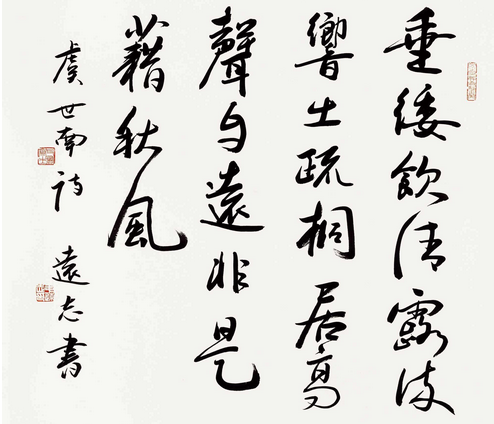 垂緌飲清露流
響出疏桐居高
聲自遠非是
藉秋風
虞世南詩 遠志書